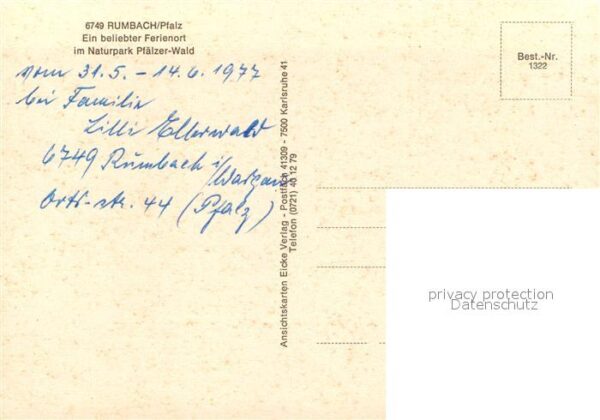 6749 RUMBACH/Pfalz
Ein beliebter Ferienort
im Naturpark Pfälzer-Wald
vom 31.5. - 14.6.1977
bei Familie
Lilli Ellerwald
6749 Rumbach i/
Orts-str. 44 (Pfalz)
Ansichtskarten Eicke Verlag - Postfach 41309 - 7500 Karlsruhe 41
Telefon (0721) 40 12 79
Best.-Nr.
1322
privacy protection
Datenschutz